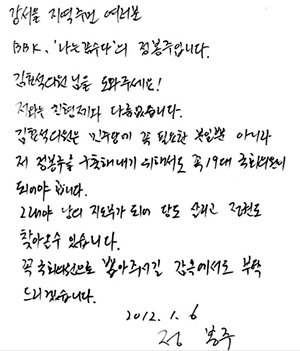 강서을 지역주민 여러분
BBK, '나는꼼수다'의 정봉주입니다.
김효석의원님을 도와주세요!
저와는 친형제와 다름없습니다.
김효석의원은 민주당이 꼭 필요한 분일뿐 아니라
저 정봉주를 구출해내기 위해서도 꼭 19대 국회의원이
되어야 합니다.
그래야 당의 지도부가 되어 당도 살리고 정권도
찾아올수 있습니다.
꼭 국회의원으로 뽑아주시길 감옥에서도 부탁
드리겠습니다.
2012. 1. 6
정 봉주